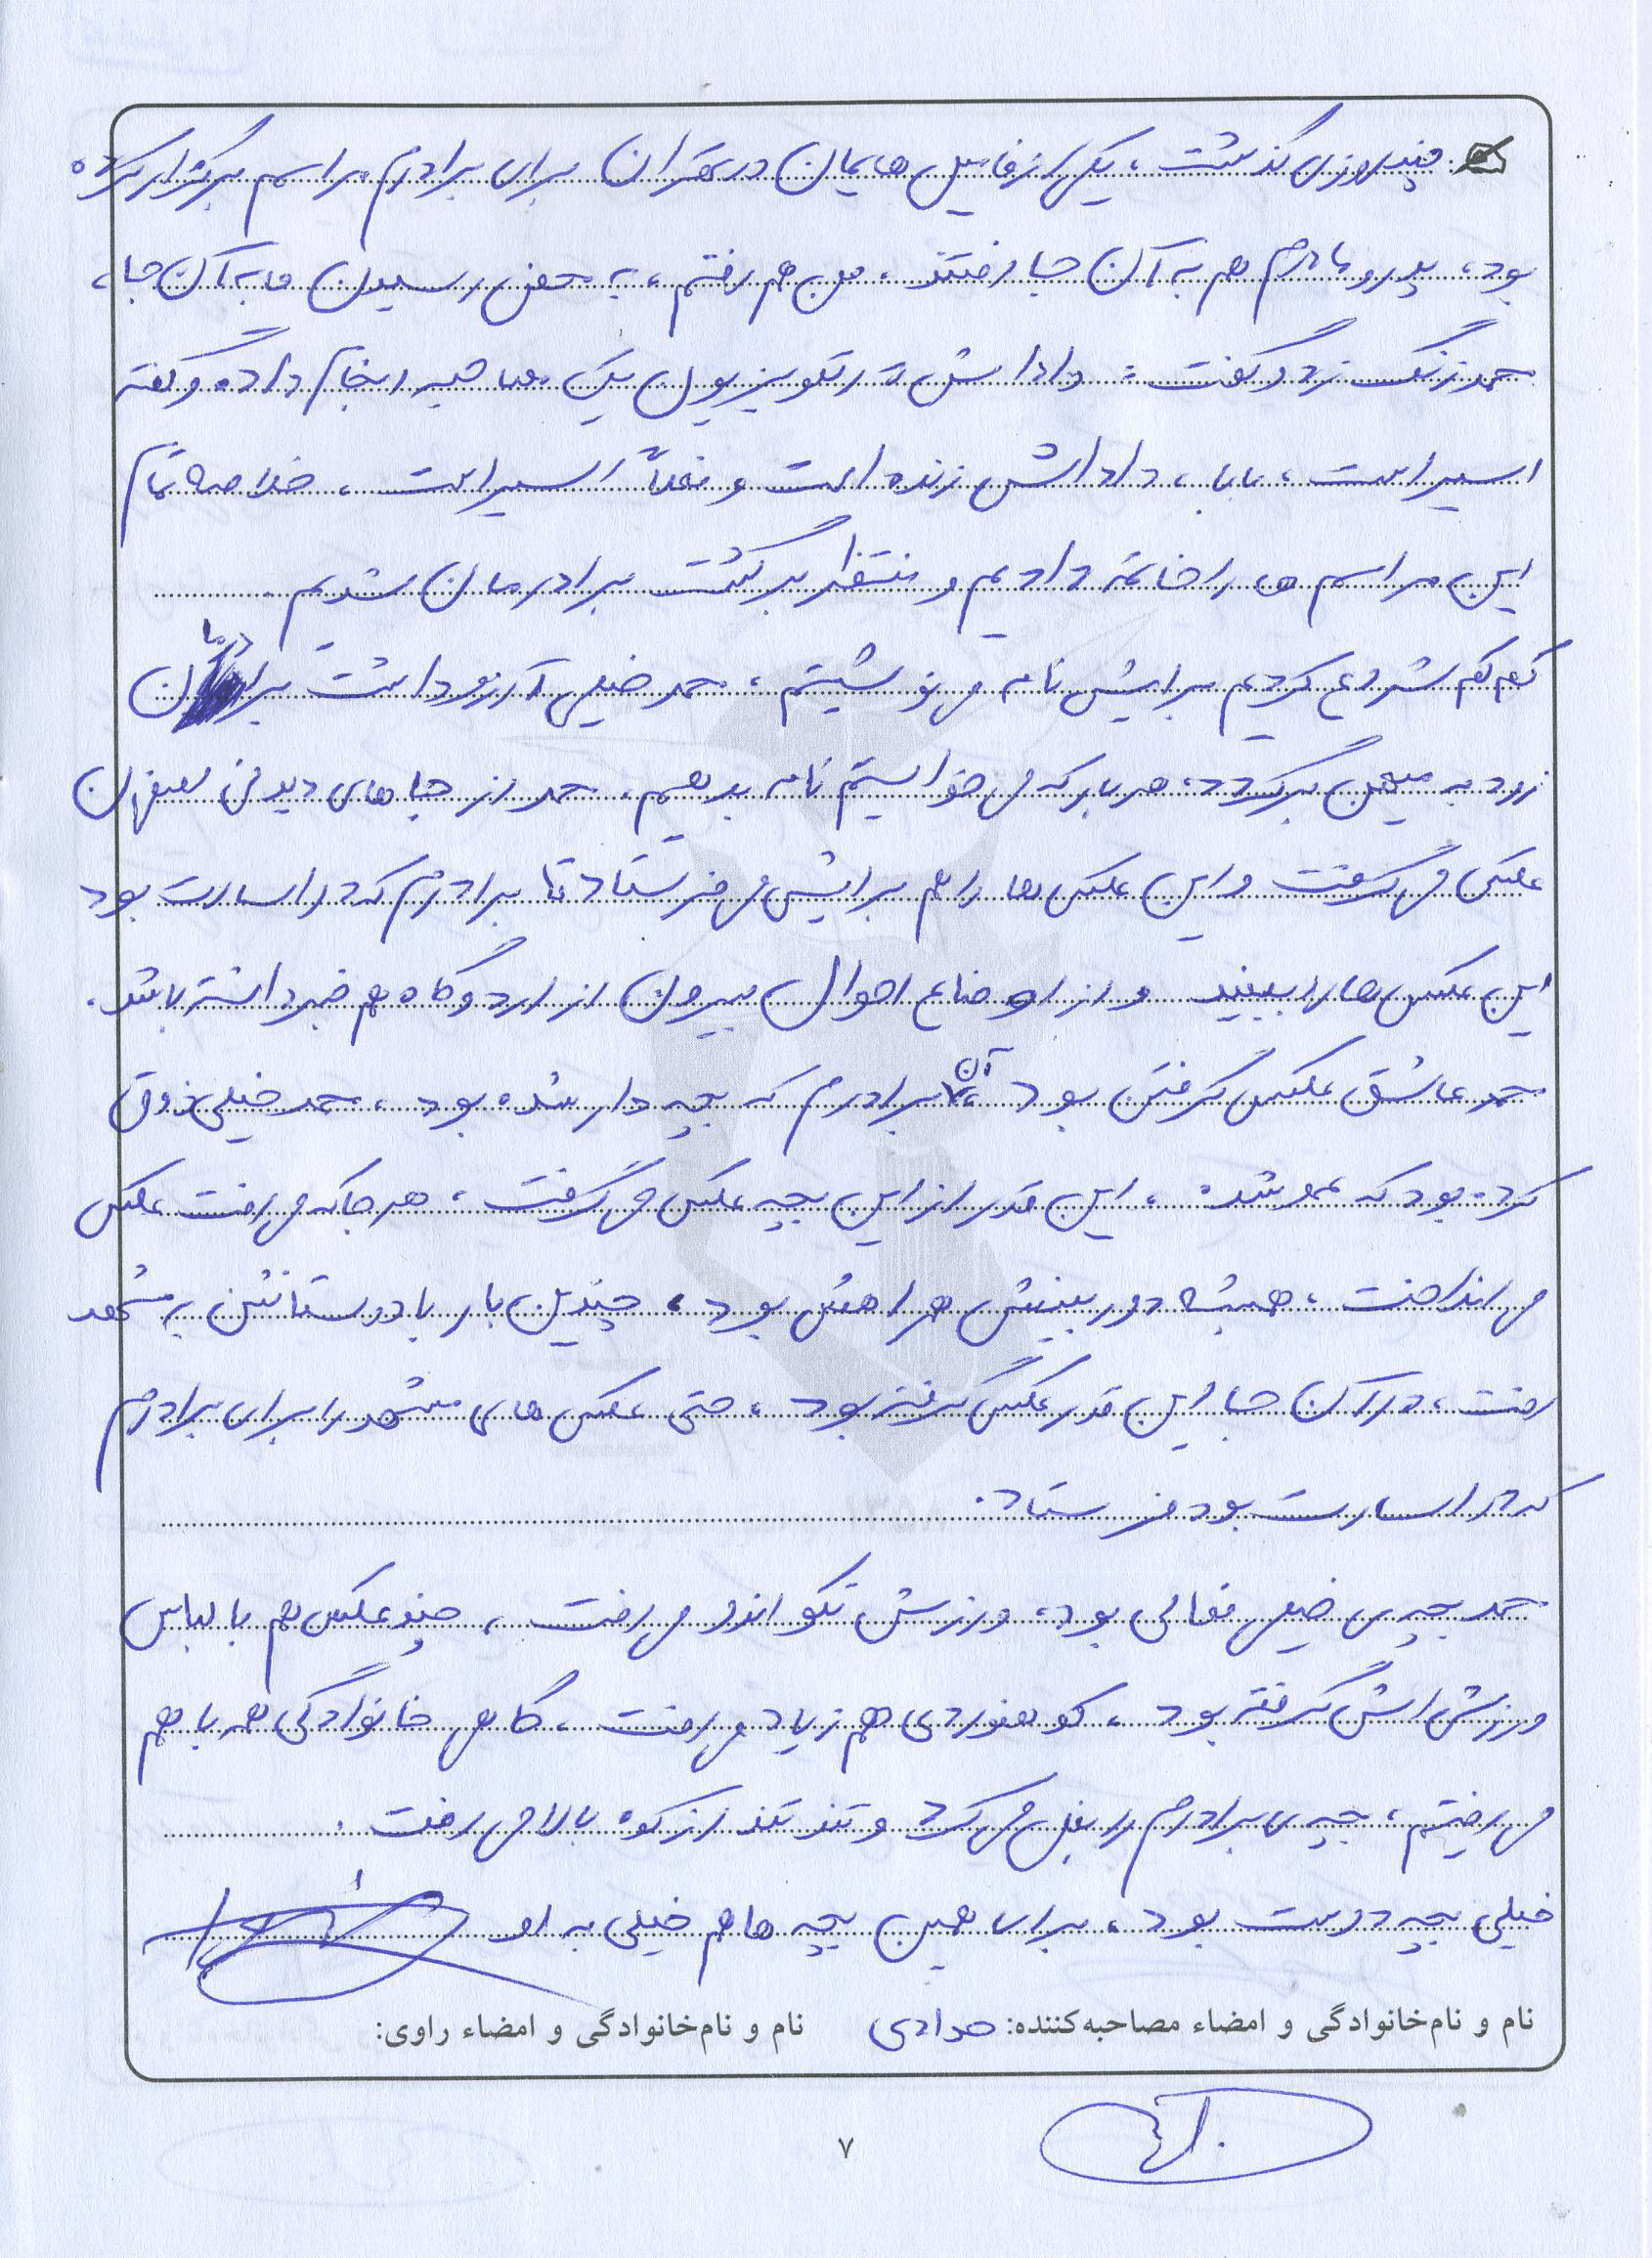 چند روزی گذشت، یکی از فامیل هایمان در تهران برای برادرم مراسم برگزار کرده
بود، پدر و مادرم هم به آن جا رفتند، من هم رفتم، به محض رسیدن ما به آن جا،
حمد زنگ زد و گفت: داداش در تلویزیون یک مصاحبه انجام داده و گفته
اسیر است، بابا، داداش زنده است و فعلاً اسیر است، خلاصه تمام
این مراسم ها را خاتمه دادیم و منتظر برگشت برادرمان شدیم.
کم کم شروع کردیم برایش نامه می نوشتیم، حمد خیلی آرزو داشت برادرمان
زود به میهن برگردد، هر بار که می خواستیم نامه بدهیم، حمد از جاهای دیدنی
عکس می گرفت و این عکس ها را هم برایش می فرستاد تا برادرم که در اسارت بود
این عکس ها را ببیند و از اوضاع احوال بیرون از اردوگاه هم خبر داشته باشد.
حمد عاشق عکس گرفتن بود آن برادرم که بچه دار شده بود، حمد خیلی ذوق
کرده بود که عمو شده، این قدر از این بچه عکس می گرفت، هر جا که می رفت عکس
می انداخت، همیشه دوربینش همراهش بود، چندین بار با دوستانش به مشهد
رفت، در آن جا این قدر عکس گرفته بود، حتی عکس های مشهد را برای برادرم
که در اسارت بود فرستاد.
حمد بچه ی خیلی فعالی بود، ورزش تکواندو می رفت، چند عکس هم با لباس
ورزش اش گرفته بود، کوهنوردی هم زیاد می رفت، گاهی خانوادگی همه با هم
می رفتیم، بچه ی برادرم را بغل می کرد و تند تند از کوه بالا می رفت.
خیلی بچه دوست بود، برای همین بچه ها هم خیلی به او
نام و نام‌خانوادگی و امضاء مصاحبه‌کننده: حدادی نام و نام‌خانوادگی و امضاء راوی:
۷